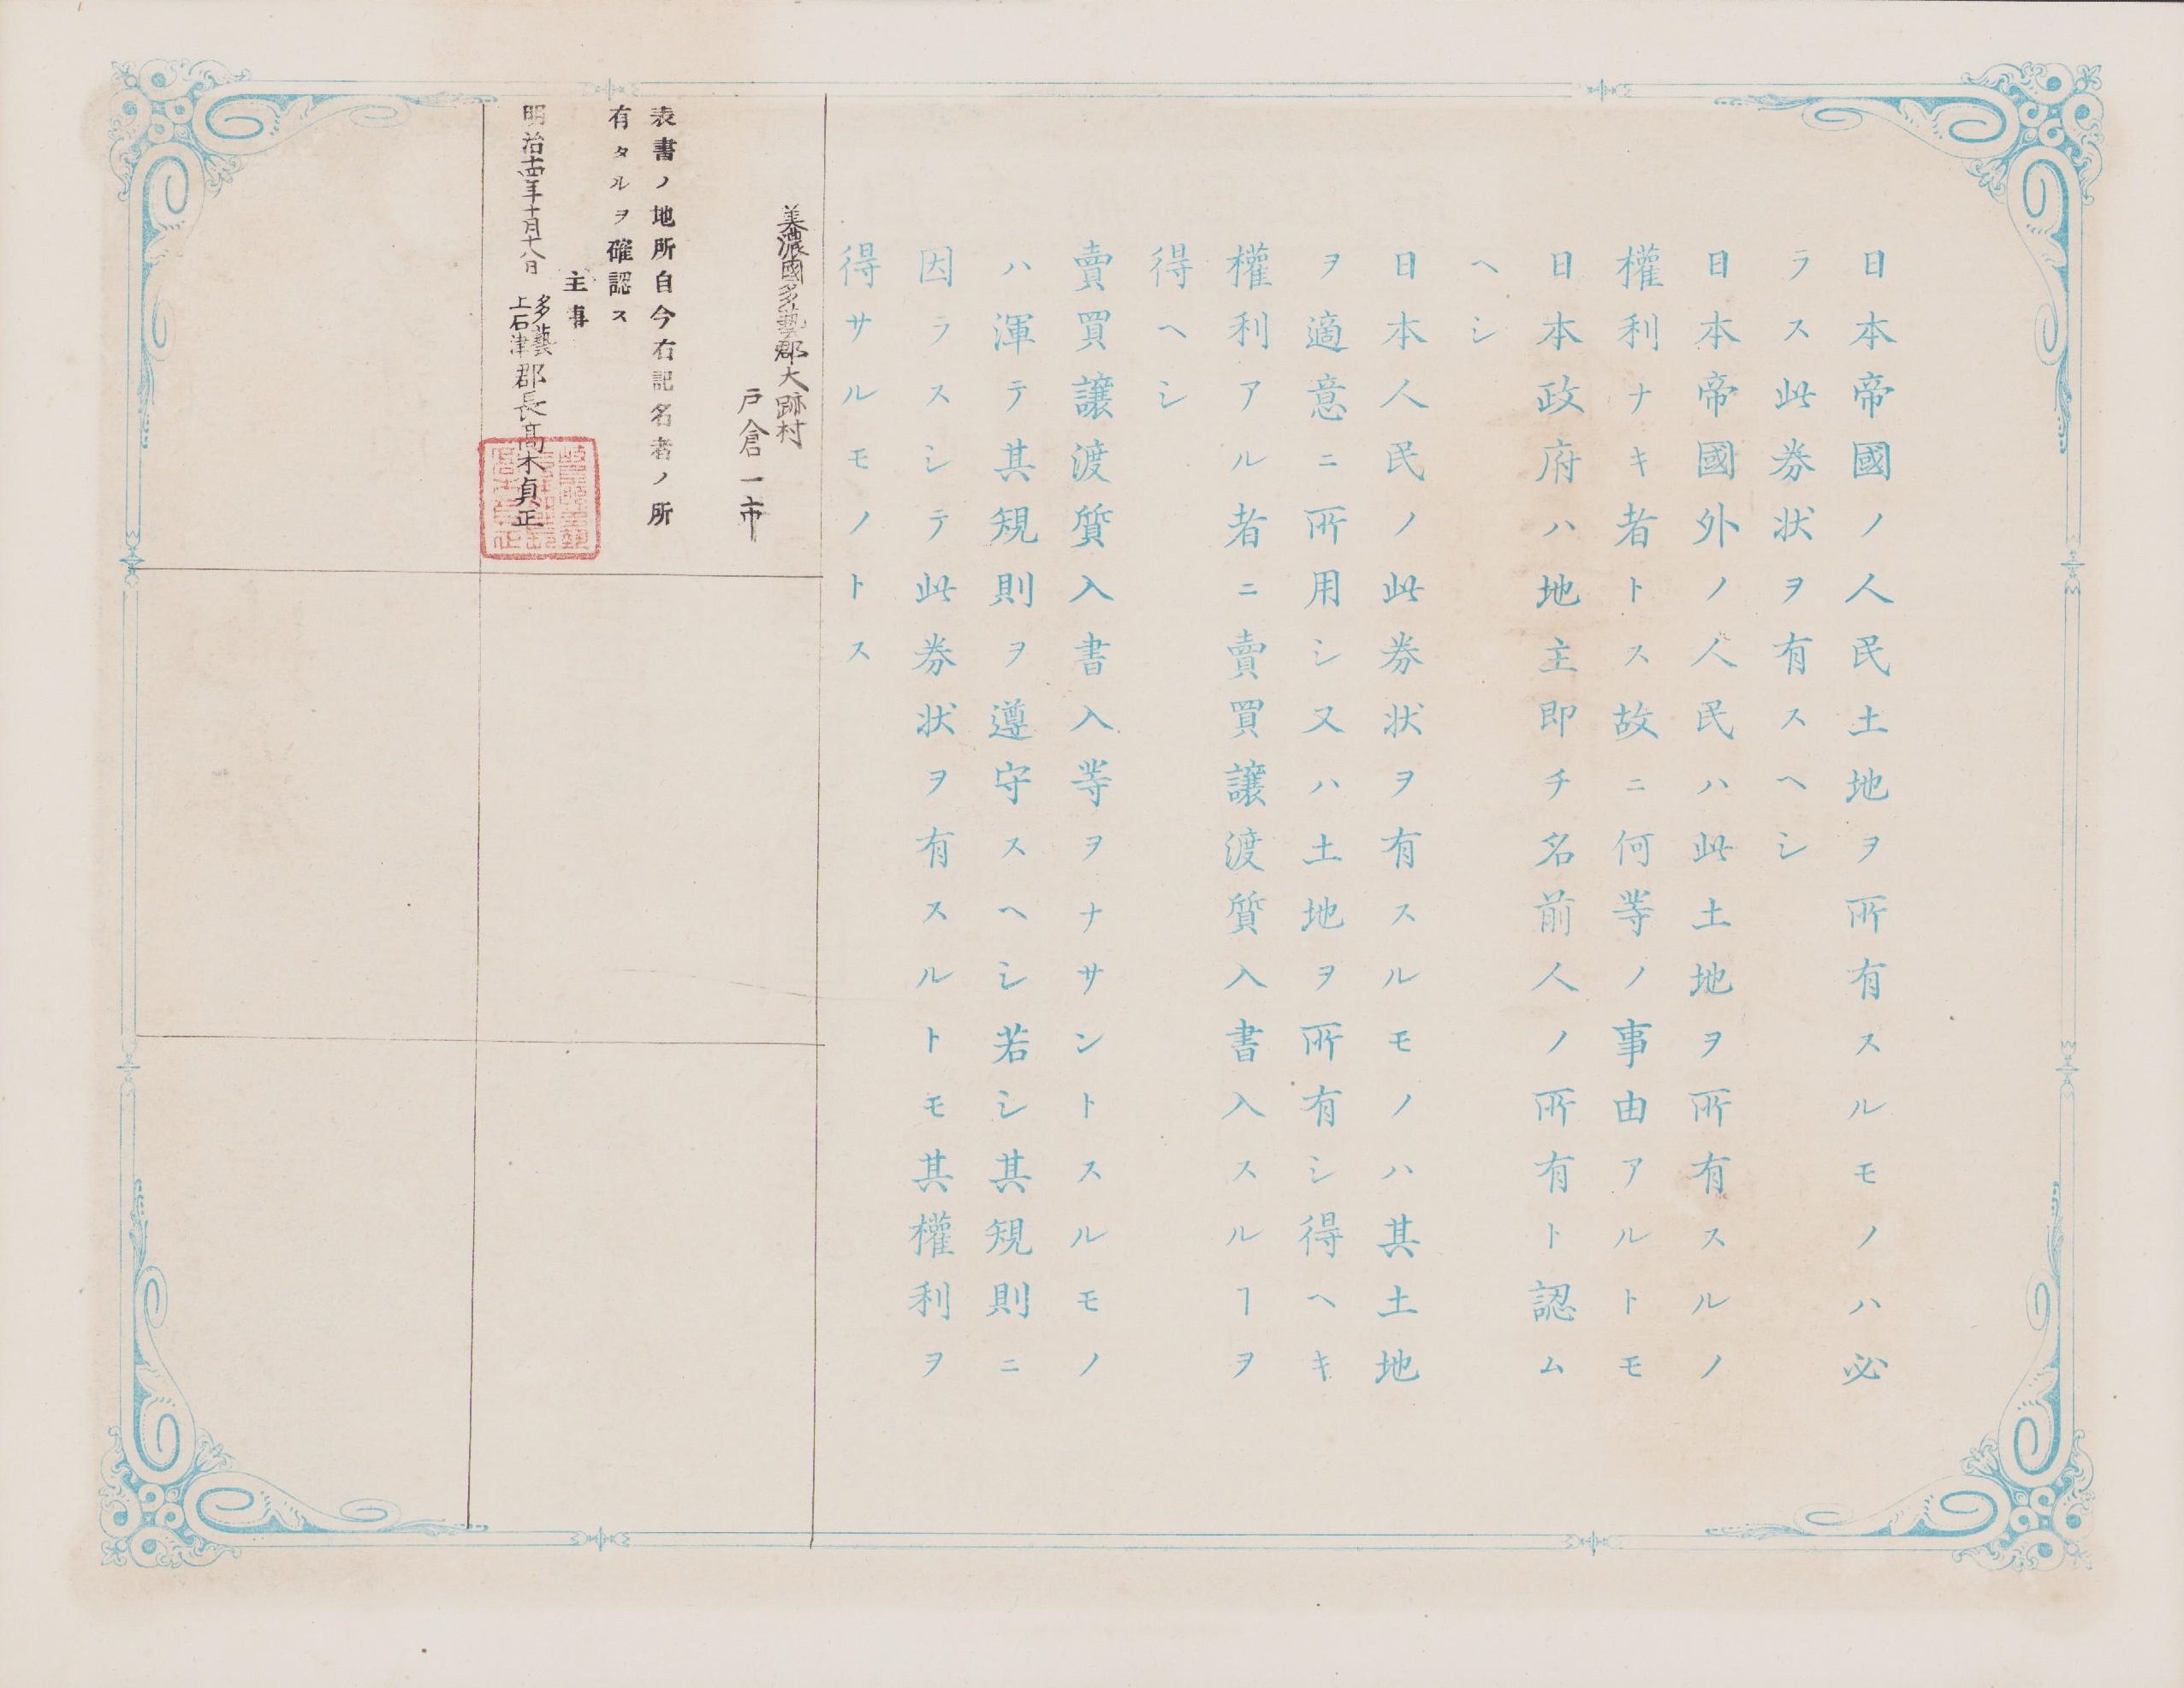 日本帝國ノ人民土地ヲ所有スルモノハ必
ラス此券状ヲ有スヘシ
日本帝國外ノ人民ハ此土地ヲ所有スルノ
權利ナキ者トス故ニ何等ノ事由アルトモ
日本政府ハ地主即チ名前人ノ所有ト認ム
ヘシ
日本人民ノ此券状ヲ有スルモノハ其土地
ヲ適意ニ所用シ又ハ土地ヲ所有シ得ヘキ
權利アル者ニ賣買譲渡質入書入スルヿヲ
得ヘシ
賣買譲渡質入書入等ヲナサントスルモノ
ハ渾テ其規則ヲ遵守スヘシ若シ其規則ニ
因ラスシテ此券状ヲ有スルトモ其權利ヲ
得サルモノトス
美濃國多藝郡大跡村
戸倉一市
表書ノ地所自今右記名者ノ所
有タルヲ確認ス
主事
明治十四年十月十八日 多藝上石津郡長高木貞正